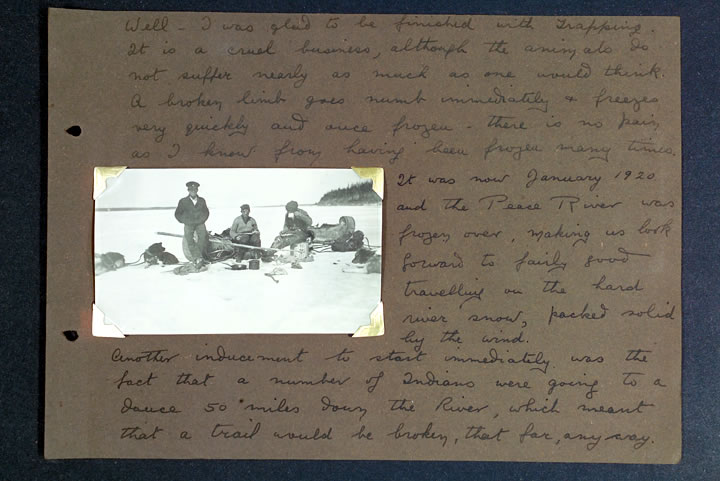 Well - I was glad to be finished with Trapping.
It is a cruel business, although the animals do
not suffer nearly as much as one would think.
A broken limb goes numb immediately & freezes
very quickly and once frozen - there is no pain,
as I know from having been frozen many times.
It was now January 1920
and the Peace River was
frozen over, making us look
forward to fairly good
travelling on the hard
river snow, packed solid
by the wind.
Another inducement to start immediately was the
fact that a number of Indians were going to a
dance 50 miles down the River, which meant
that a trail would be broken, that far, any way.